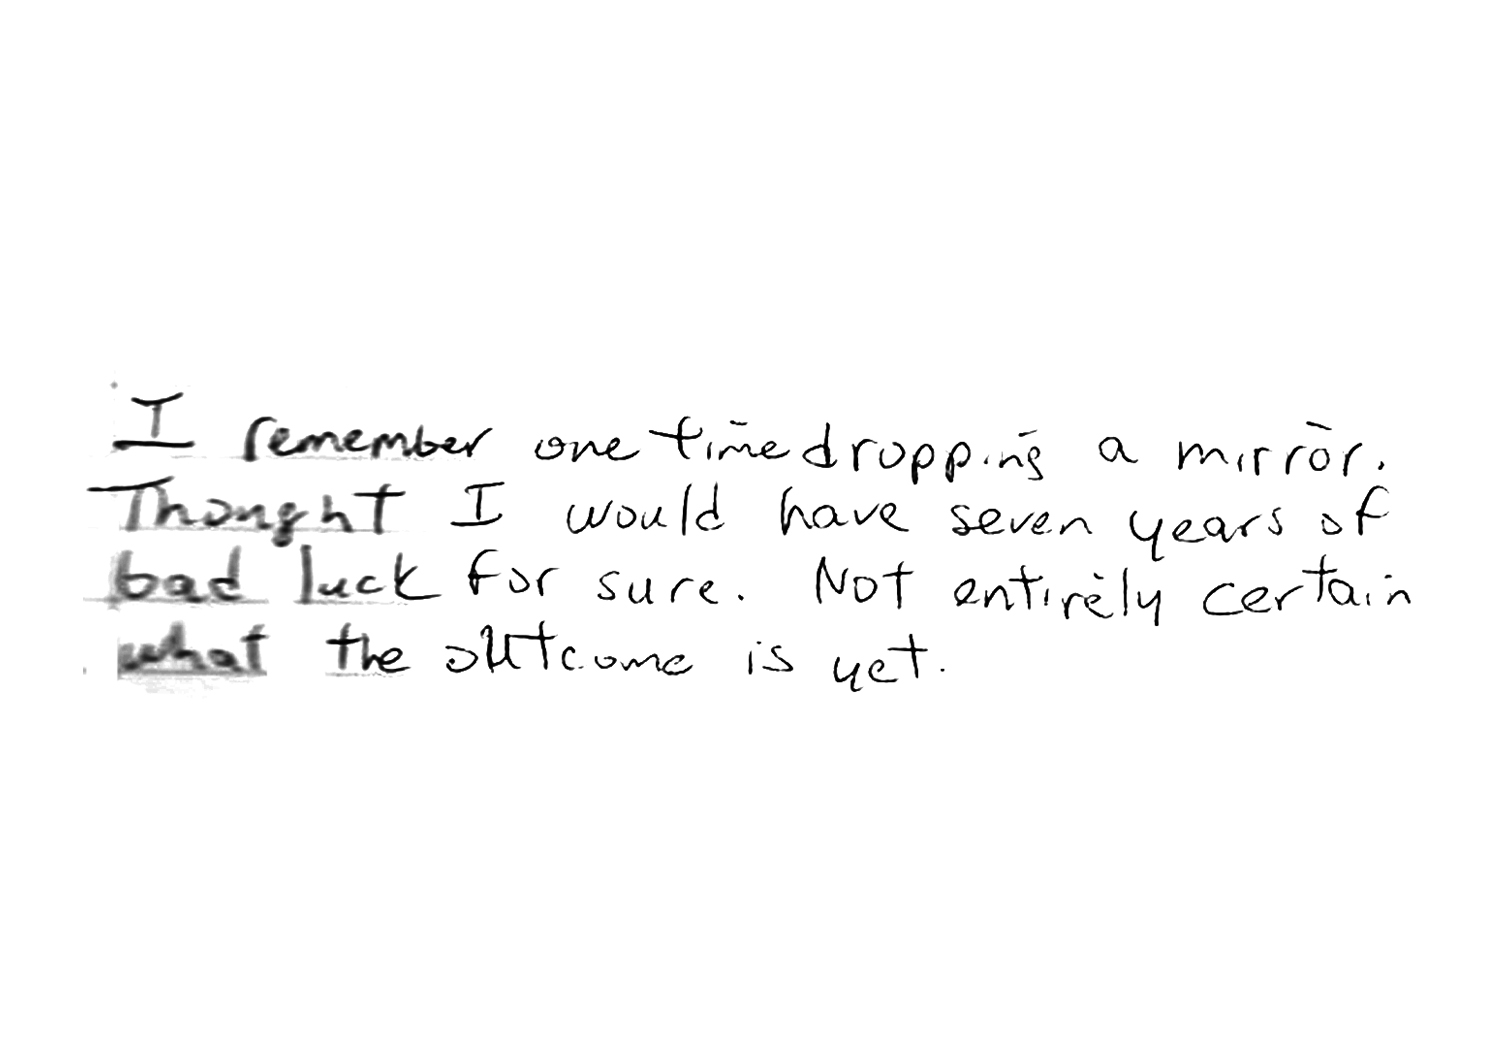 I remember one time dropping a mirror.
Thought I would have seven years of
bad luck for sure. Not entirely certain
what the outcome is yet.